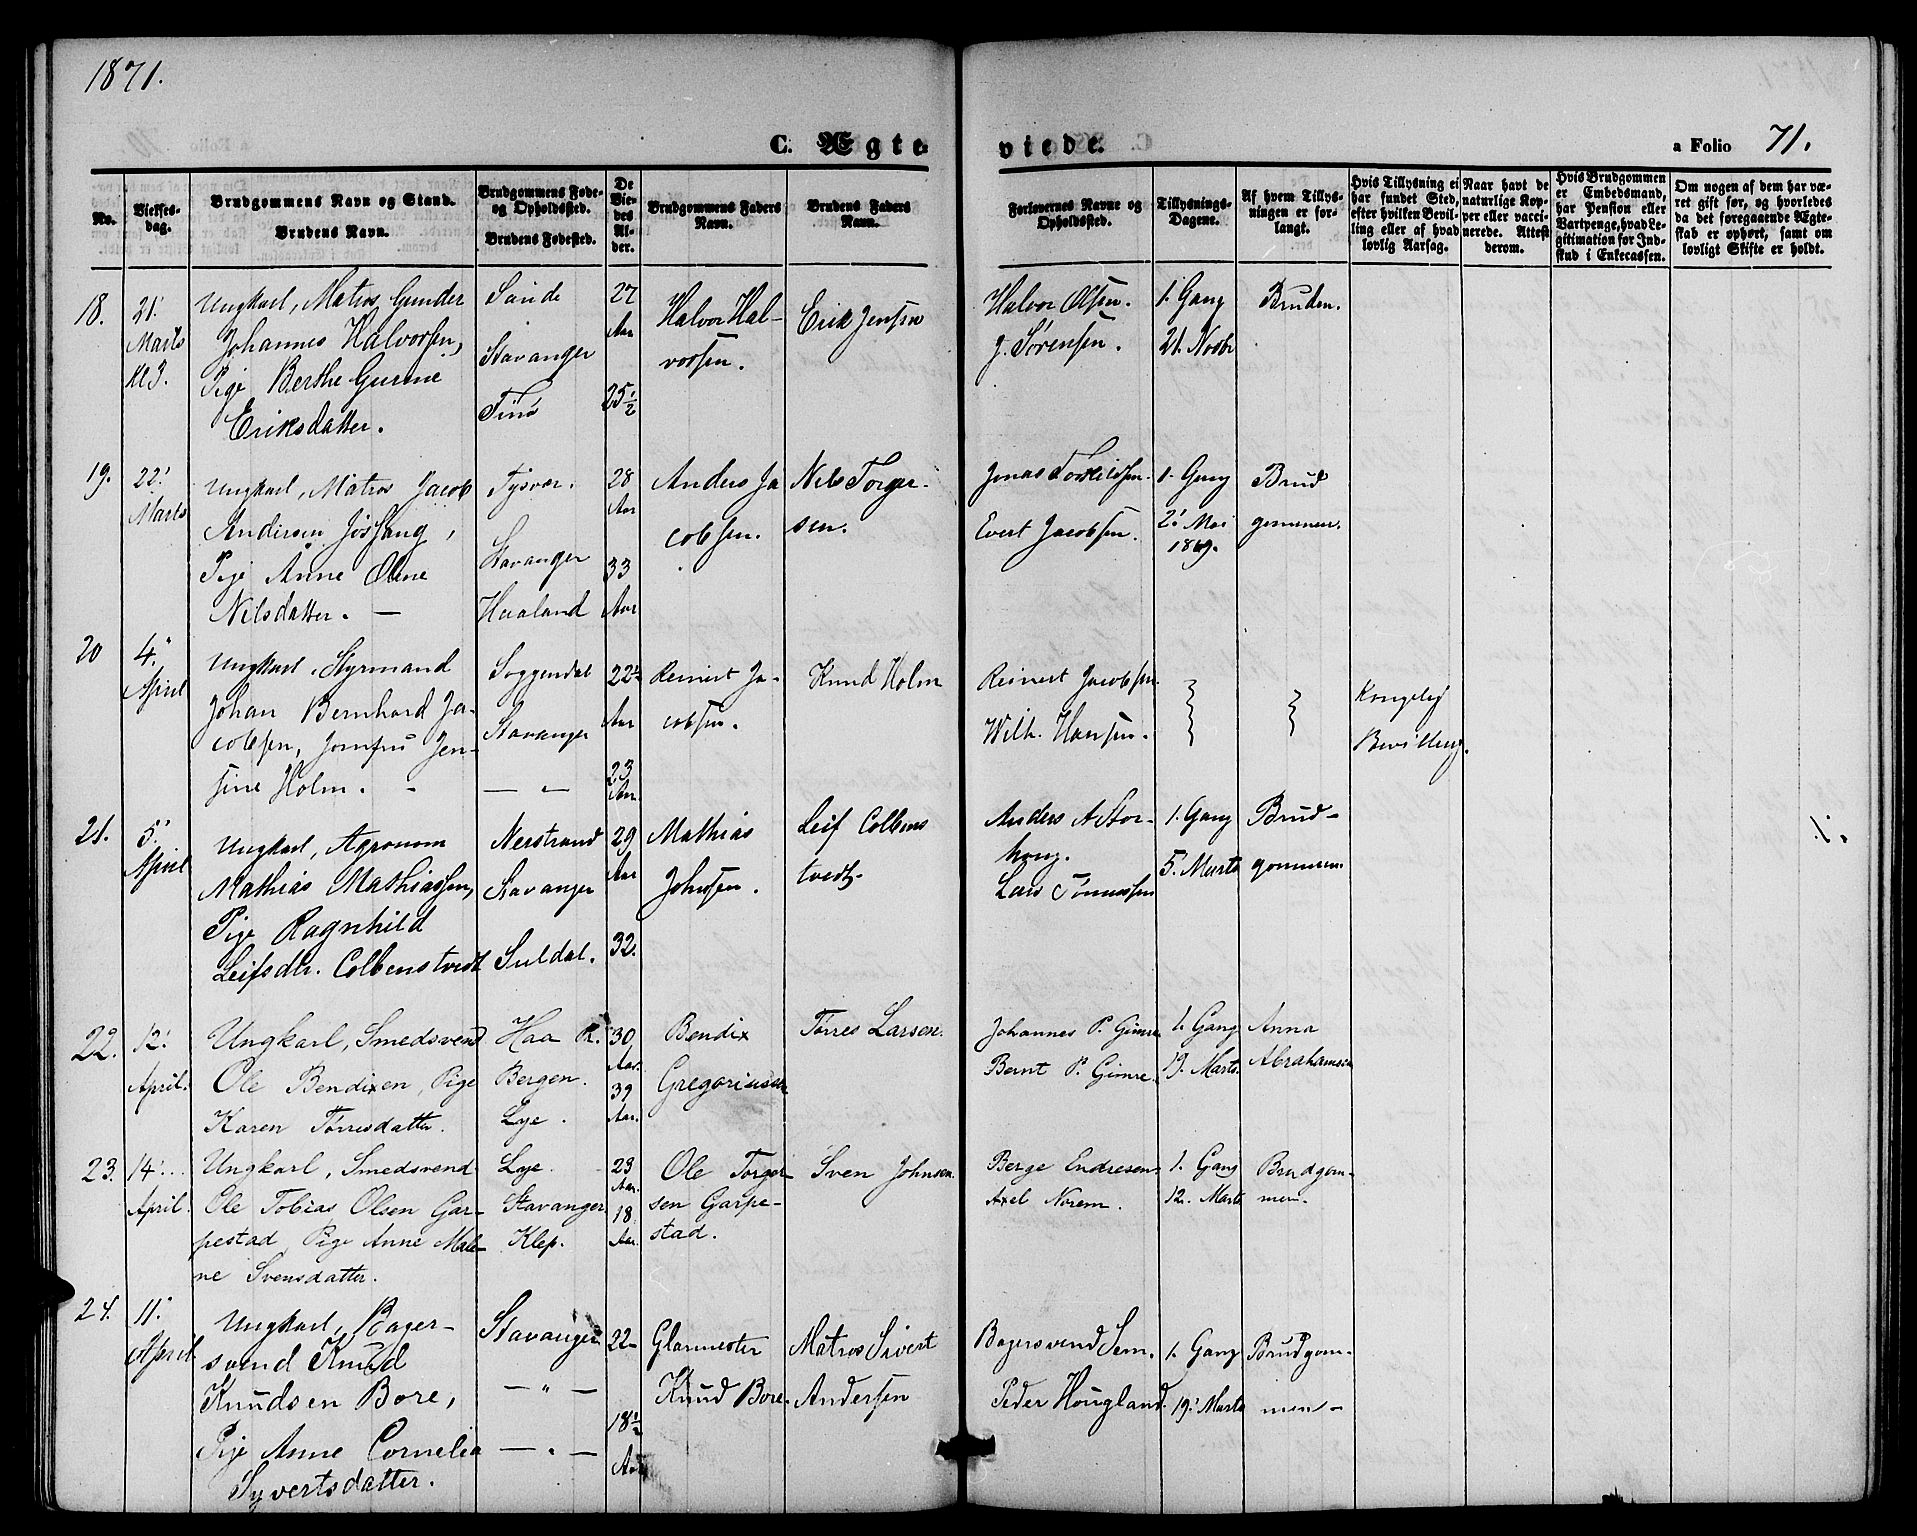 1871.
C. Ægte
viede.
a Folio 71.
No.
Vielses-
dag.
Brudgommens Navn og Stand.
Brudens Navn.
Brudgommens Føde-
og Opholdssted.
Brudens Fødested.
De
Vie-
des
Al-
der.
Brudgommens Faders
Navn.
Brudens Faders
Navn.
Forlovernes Navne og
Opholdssted.
Tillysnings-
Dagene.
Af hvem Tillys-
ningen er for-
langt.
Hvis Tillysning ei
har fundet Sted,
efter hvilken Bevil-
ling eller af hvad
lovlig Aarsag.
Naar havt de
naturlige Kop-
per eller vacci-
nerede. Attest
derom.
Hvis Brudgommen
er Embedsmand,
har Pension eller
Vartpenge, hvad Le-
gitimation for Ind-
skud i Enkecassen.
Om nogen af dem har væ-
ret gift før, og hvorledes
da det foregaaende Ægte-
skab er ophørt, samt om
lovligt Skifte er holdt.
18.
21'
Marts
Kl 3.
Ungkarl, Matros Gunder
Johannes Halvorsen,
Pige Berthe Gurine
Eriksdatter.
Sande
Stavanger
27
Aar
25½
Halvor Hal-
vorsen.
Erik Jensen
Halvor Olsen.
J. Sørensen.
1. Gang
21. Novbr
Bruden.
19.
22'
Marts
Ungkarl, Matros Jacob
Andersen Jøsfang,
Pige Anne Oline
Nilsdatter. —
Tysvær.
Stavanger
Haaland
28
Aar
33
Aar
Anders Ja
cobsen.
Nils Torger-
sen.
Jonas Torkildsen.
Evert Jacobsen.
1. Gang
2' Mai
1869.
Brud
gommen.
20
4.
April
Ungkarl, Styrmand
Johan Bernhard Ja-
cobsen, Jomfru Jen-
sine Holm. -
Soggendal
Stavanger
— " —
22½
Aar
23
Aar.
Reinert Ja-
cobsen.
Knud Holm
Reinert Jacobsen.
Wilh. Hansen.
Kongelig
Bevilling.
21.
5'
April
Ungkarl, Agronom
Mathias Mathiassen,
Pige Ragnhild
Leifsdtr. Colbenstvedt
Nerstrand
Stavanger
Suldal.
29
Aar
32.
Mathias
Johnsen.
Leif Colbens
tvedt.
Anders A Stor-
houg.
Lars Tønnessen
1. Gang
5. Marts
Brud-
gommen
22.
12'
April.
Ungkarl, Smedsvend
Ole Bendixen, Pige
Karen Tørresdatter.
Haa P.
Bergen.
Lye.
30
Aar.
39
Aar.
Bendix
Gregoriussen
Tørres Larsen.
Johannes P. Gimre
Bernt P. Gimre.
1. Gang
19. Marts.
Anna
Abrahamsen
23.
14'
April.
Ungkarl, Smedsvend
Ole Tobias Olsen Gar-
pestad, Pige Anne Male-
ne Svensdatter.
Lye.
Stavanger
Klep.
23
Aar.
18
Aar.
Ole Torger-
sen Garpe-
stad.
Sven Johnsen.
Berge Endresen
Axel Norem.
1. Gang
12. Marts
Brudgom-
men.
24.
11'
April
Ungkarl, Bager-
svend Knud
Knudsen Bore,
Pige Anne Cornelia
Syvertsdatter.
Stavanger
— " —
— " —
22
18½
Aar
Glarmester
Knud Bore.
Matros Sivert
Andersen
Bagersvend Sem.
Peder Hougland.
1. Gang
19' Marts
Brudgom-
men-